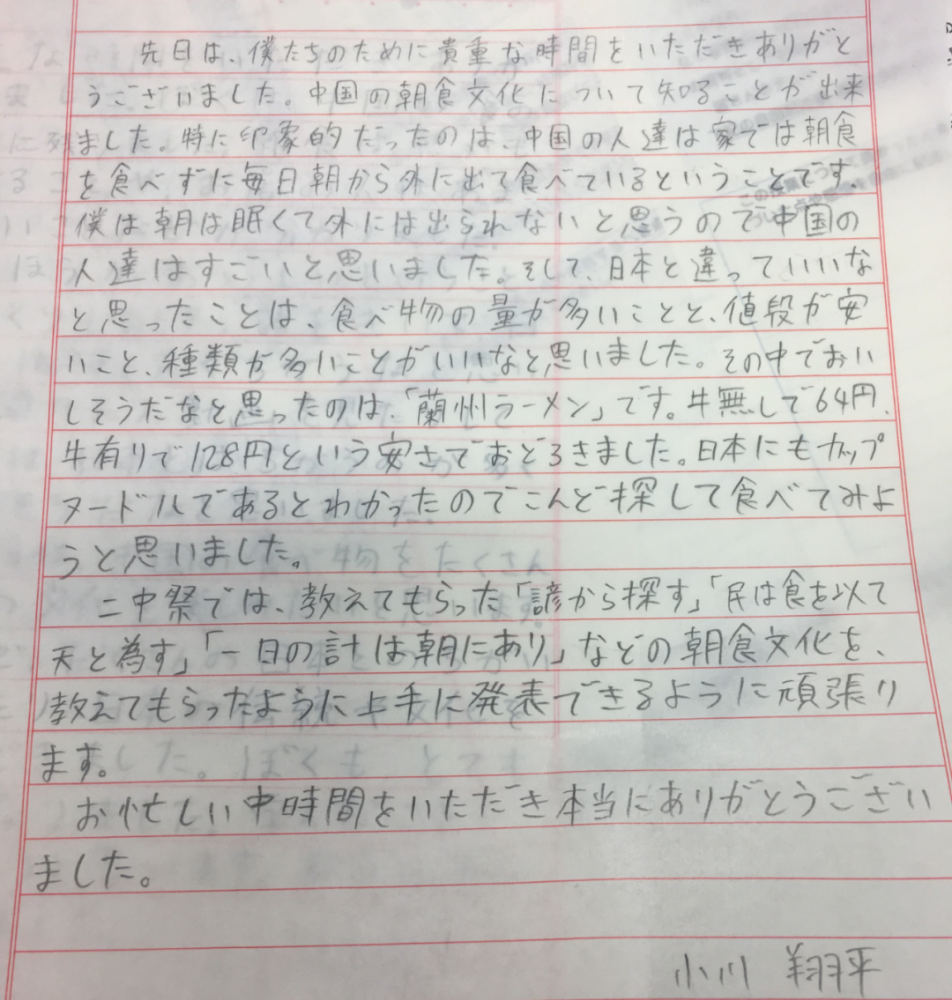 先日は、僕たちのために貴重な時間をいただきありがと
うございました。中国の朝食文化について知ることが出来
ました。特に印象的だったのは、中国の人達は家では朝食
を食べずに毎日朝から外に出て食べているということです。
僕は朝は眠くて外には出られないと思うので中国の
人達はすごいと思いました。そして、日本と違っていいな
と思ったことは、食べ物の量が多いことと、値段が安
いこと、種類が多いことがいいなと思いました。その中でおい
しそうだなと思ったのは、「蘭州ラーメン」です。牛無しで64円、
牛有りで128円という安さでおどろきました。日本にもカップ
ヌードルであるとわかったのでこんど探して食べてみよ
うと思いました。
二中祭では、教えてもらった「諺から探す」「民は食を以て
天と為す」「一日の計は朝にあり」などの朝食文化を、
教えてもらったように上手に発表できるように頑張り
ます。
お忙しい中時間をいただき本当にありがとうござい
ました。
小川 翔平